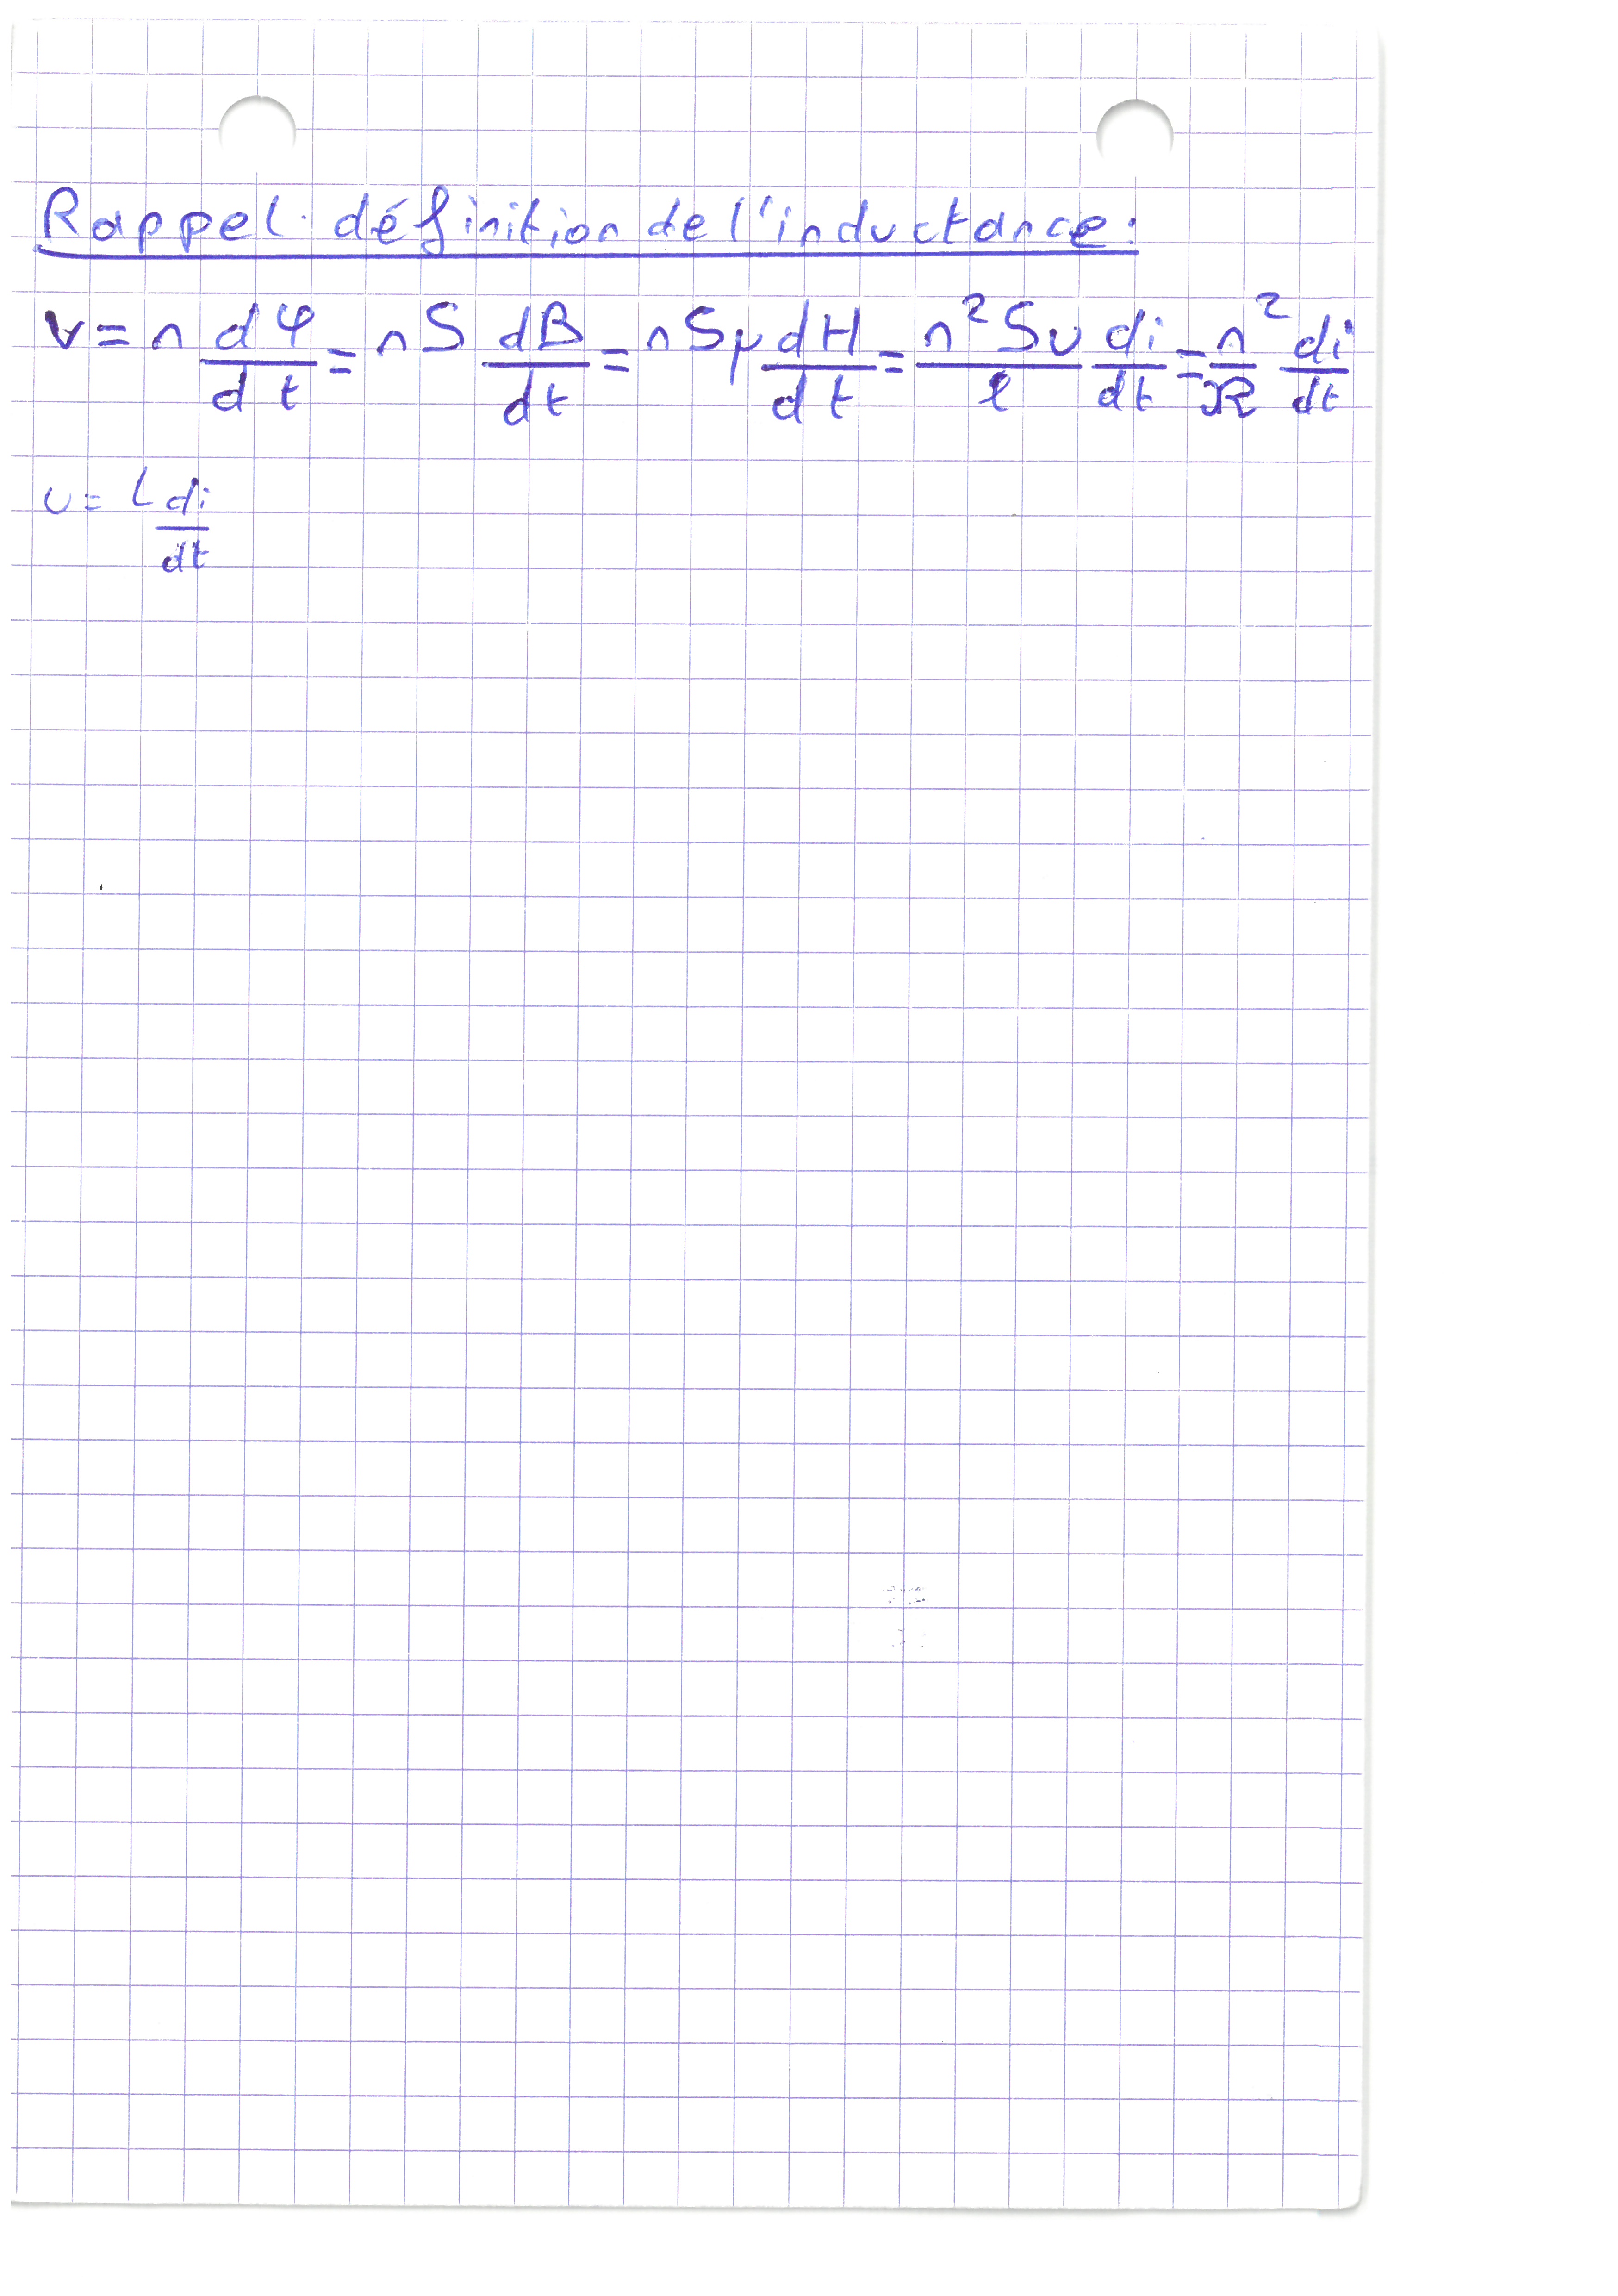 Rappel: définition de l'inductance:
v = n dφ/dt = nS dB/dt = nSμ dH/dt = n²Sυ/ℓ di/dt = n²/ℜ di/dt
υ = L di/dt